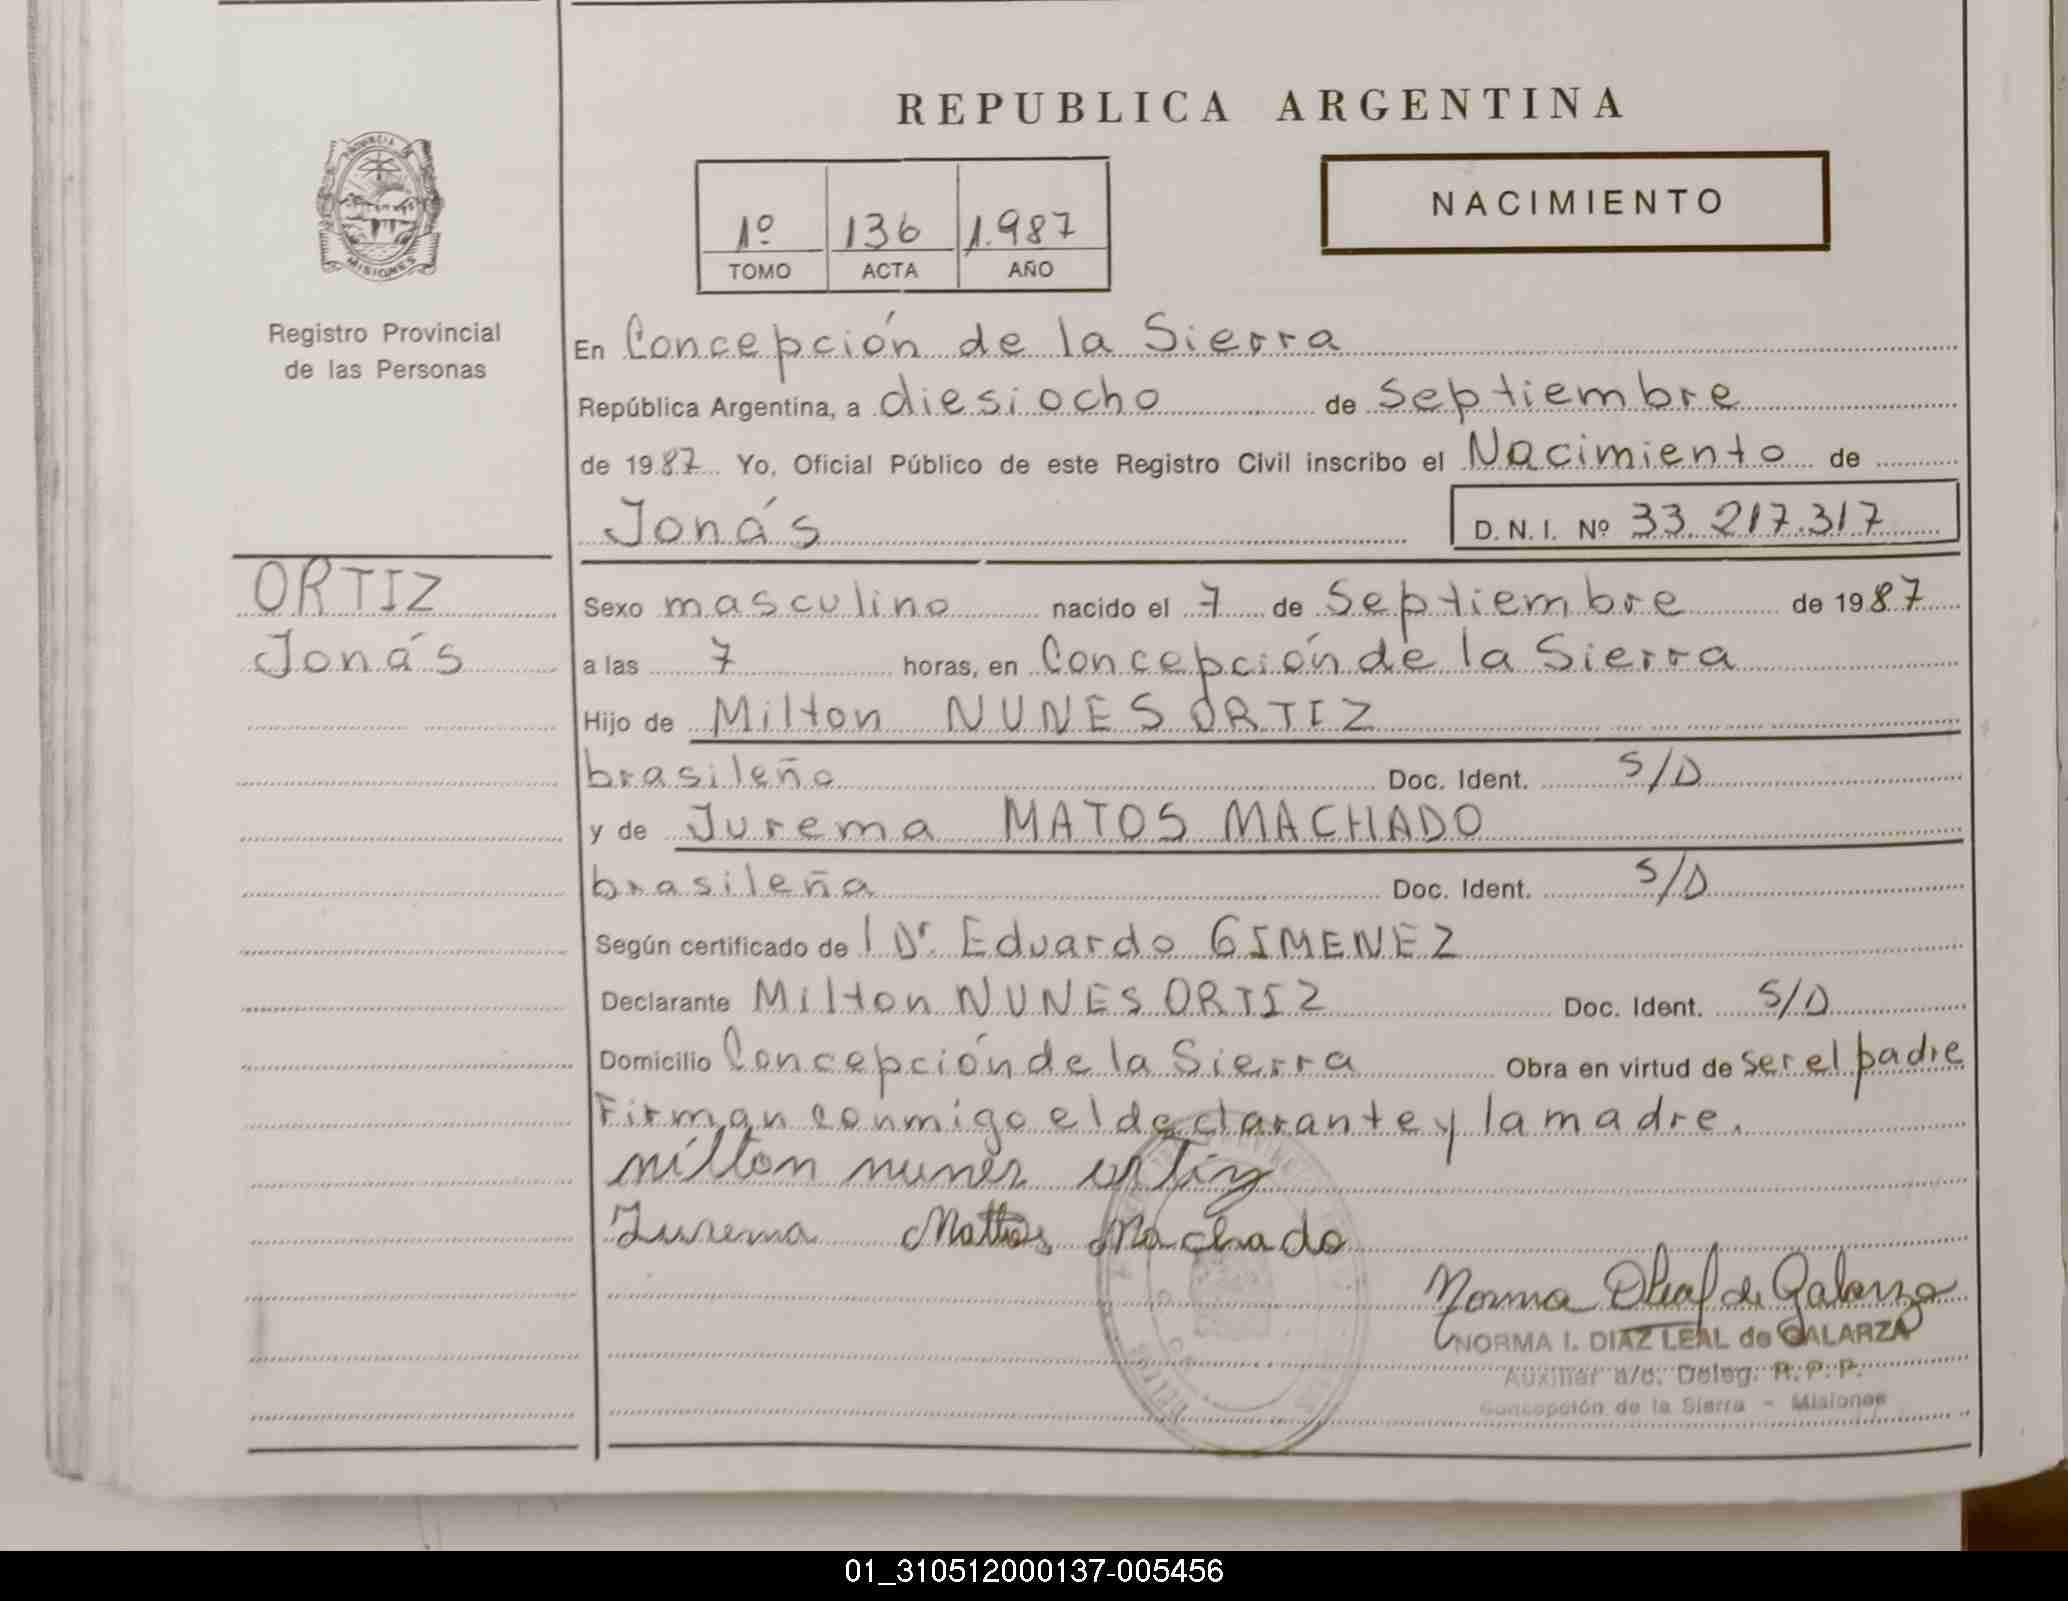 REPUBLICA ARGENTINA
PROVINCIA DE
MISIONES
Registro Provincial
de las Personas
1º 136 1.987
TOMO ACTA AÑO
NACIMIENTO
En Concepción de la Sierra
República Argentina, a diesiocho de Septiembre
de 1987 Yo, Oficial Público de este Registro Civil inscribo el Nacimiento de
Jonás D.N.I. Nº 33.217.317
ORTIZ
Jonás
Sexo masculino nacido el 7 de Septiembre de 1987
a las 7 horas, en Concepción de la Sierra
Hijo de Milton NUNES ORTIZ
brasileño Doc. Ident. S/D
y de Jurema MATOS MACHADO
brasileña Doc. Ident. S/D
Según certificado de l Dr. Eduardo GIMENEZ
Declarante Milton NUNES ORTIZ Doc. Ident. S/D
Domicilio Concepción de la Sierra Obra en virtud de ser el padre
Firman conmigo el declarante y la madre.
milton nunes ortiz
Jurema Mattos Machado
Norma DLeal de Galarza
NORMA I. DIAZ LEAL de GALARZA
Auxiliar a/c. Deleg. R.P.P.
Concepción de la Sierra - Misiones
01_310512000137-005456